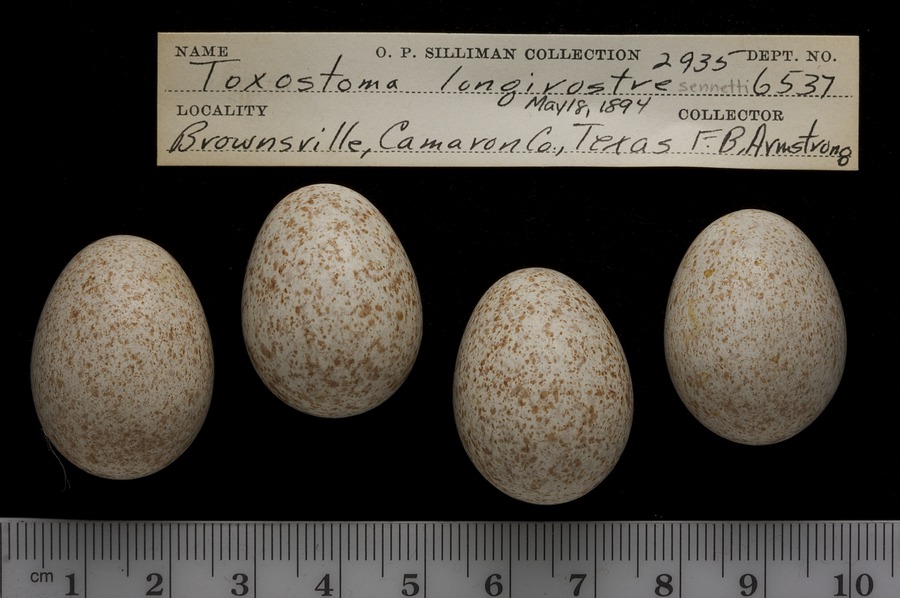 NAME O. P. SILLIMAN COLLECTION 2935 DEPT. NO.
Toxostoma longirostre sennetti 6537
LOCALITY May 18, 1894 COLLECTOR
Brownsville, Camaron Co., Texas F. B. Armstrong
cm 1 2 3 4 5 6 7 8 9 10